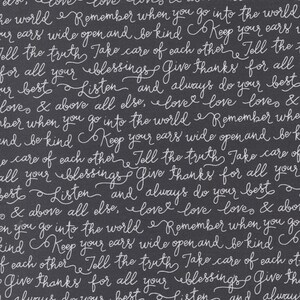 love Remember when you go into the world
your ears wide open and be kind Keep your ears
Tell the truth Take care of each other Tell the
for all your blessings Give thanks for all
your best Listen and always do your best
love & above all else, love love & above
ber when you go into the world Remember when
nd be kind Keep your ears wide open and be
are of each other Tell the truth Take care of
all your blessings Give thanks for all your
best Listen and always do your best
& above all else, love love love & above
when you go into the world Remember when you
kind Keep your ears wide open and be kind
care of each other Tell the truth Take care
Give thanks for all your blessings Give than
your best Listen and always do your best